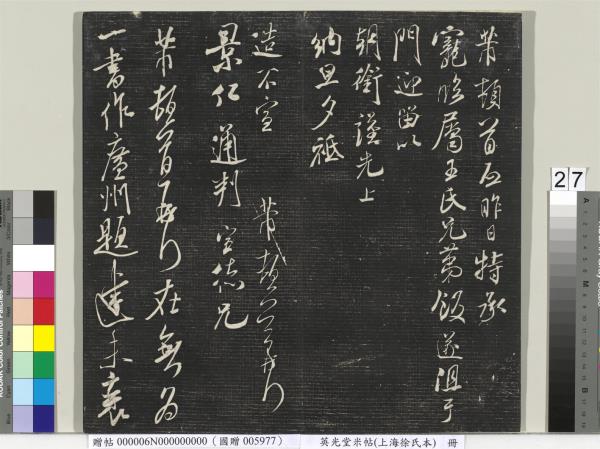 芾頓首啟昨日特承
寵臨屬王氏兄弟飯遂沮于
門迎留以
朝銜謹先上
納旦夕祗
造不宣 芾頓首再行
景仁通判 宣德兄
芾頓首再行在無為
一書作廣州題達未襄
27
KODAK Color Control Patches
贈帖 000006N000000000（國贈 005977）
英光堂米帖(上海徐氏本) 冊